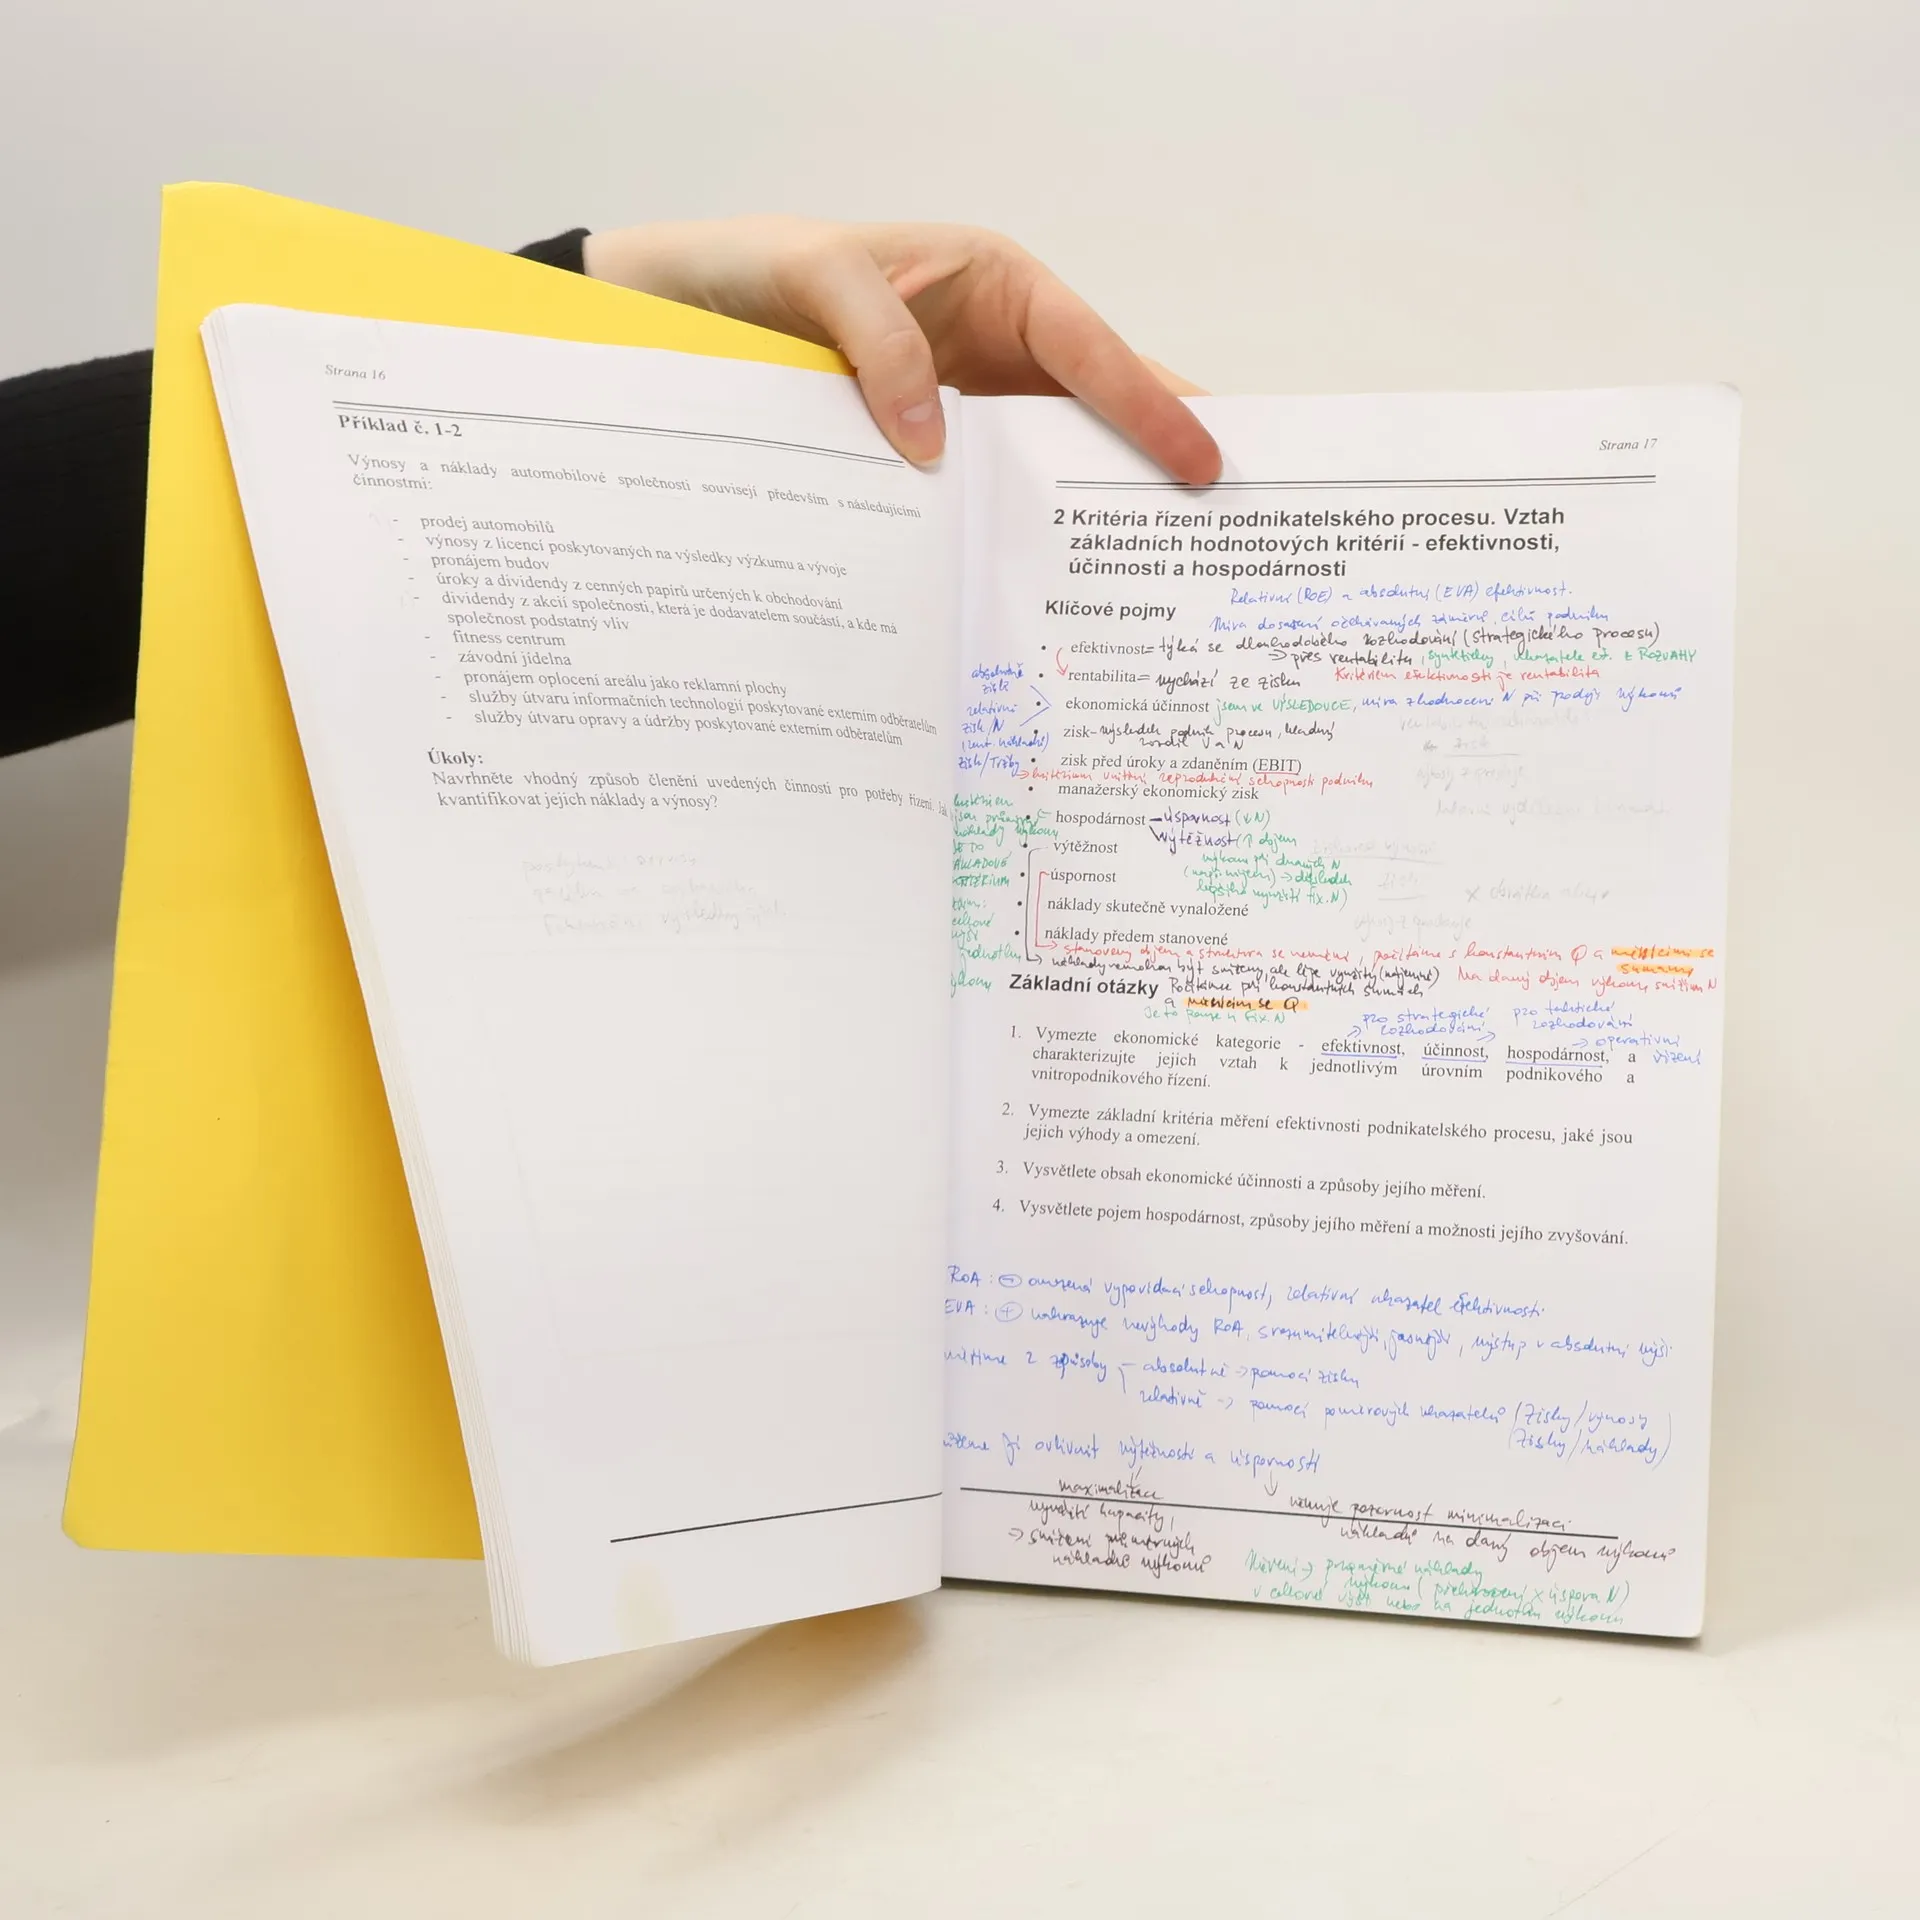 Strana 16
Příklad č. 1-2
Výnosy a náklady automobilové společnosti souvisejí především s následujícími
činnostmi:
- prodej automobilů
- výnosy z licencí poskytovaných na výsledky výzkumu a vývoje
- pronájem budov
- úroky a dividendy z cenných papírů určených k obchodování
- dividendy z akcií společnosti, která je dodavatelem součástí, a kde má
společnost podstatný vliv
- fitness centrum
- závodní jídelna
- pronájem oplocení areálu jako reklamní plochy
- služby útvaru informačních technologií poskytované externím odběratelům
- služby útvaru opravy a údržby poskytované externím odběratelům
Úkoly:
Navrhněte vhodný způsob členění uvedených činností pro potřeby řízení. Jak
kvantifikovat jejich náklady a výnosy?
Strana 17
2 Kritéria řízení podnikatelského procesu. Vztah
základních hodnotových kritérií - efektivnosti,
účinnosti a hospodárnosti
Relativní (ROE) a absolutní (EVA) efektivnost.
Klíčové pojmy
Míra dosažení očekávaných záměrů, cílů podniku
• efektivnost= týká se dlouhodobého rozhodování (strategického procesu)
→ přes rentabilitu, syntetický ukazatele z ROZVAHY
• rentabilita= vychází ze zisku
Kritériem efektivnosti je rentabilita
absolutně
zisk
relativní
zisk/N
zisk/Tržby
• ekonomická účinnost jsem ve VÝSLEDOVCE, míra zhodnocení N při podej výkonů
• zisk- výsledek podnik procesu, kladný
rozdíl V a N
• zisk před úroky a zdaněním (EBIT)
→ kritérium vnitřní reprodukční schopnosti podniku
• manažerský ekonomický zisk
• hospodárnost - úspornost (↓N)
výtěžnost (↑ objem
výkonu při daných N
• výtěžnost
• úspornost
→ důsledek
lepšího využití fix. N)
• náklady skutečně vynaložené
• náklady předem stanovené
→ stanovený objem a struktura se nemění, počítáme s konstantním Q a měnícími se
sumami
→ náklady nemohou být sníženy, ale lépe využity (nájemné)
Na daný objem výkonu snížím N
Základní otázky
Počítáme při konstantních sumách
a měnícím se Q
Je to pouze u fix. N
pro strategické
rozhodování
pro taktické
rozhodování
→ operativní
řízení
1. Vymezte ekonomické kategorie - efektivnost, účinnost, hospodárnost, a
charakterizujte jejich vztah k jednotlivým úrovním podnikového a
vnitropodnikového řízení.
2. Vymezte základní kritéria měření efektivnosti podnikatelského procesu, jaké jsou
jejich výhody a omezení.
3. Vysvětlete obsah ekonomické účinnosti a způsoby jejího měření.
4. Vysvětlete pojem hospodárnost, způsoby jejího měření a možnosti jejího zvyšování.
ROA: ⊖ omezená vypovídací schopnost, relativní ukazatel efektivnosti
EVA: ⊕ nahrazuje nevýhody ROA, srozumitelnější, jasnější, výstup v absolutní výši
měříme 2 způsoby - absolutně → pomocí zisku
relativně → pomocí poměrových ukazatelů (Zisky/výnosy
(Zisky/náklady)
ji ovlivnit výtěžností a úsporností
maximalizace
využití kapacity,
→ snížení průměrných
nákladů výkonů
věnuje pozornost minimalizaci
nákladů na daný objem výkonů
Měření → průměrné náklady
výkonu (překročení X úspora N)
v celkové výši nebo na jednotku výkonu